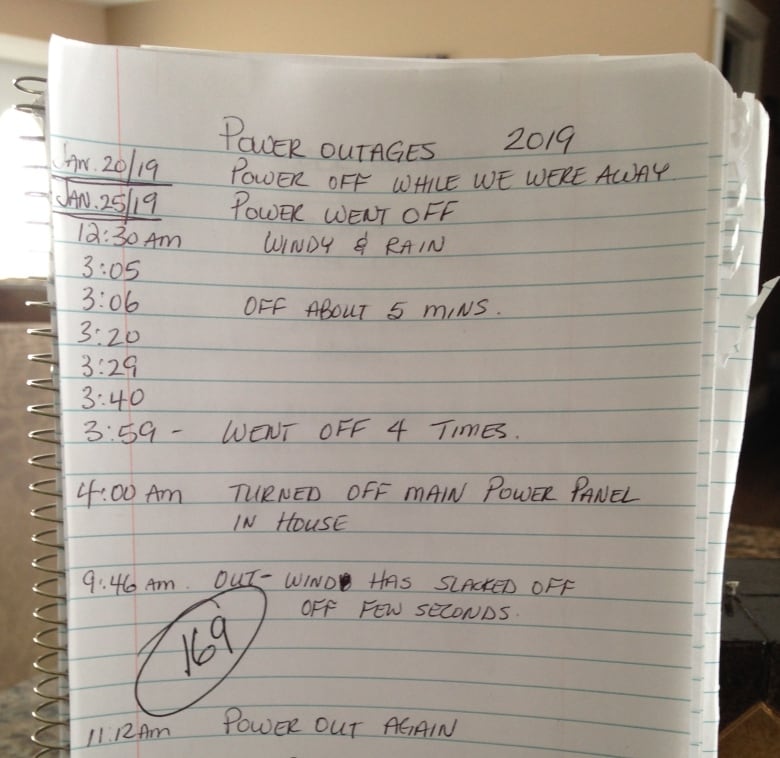 POWER OUTAGES 2019
JAN. 20/19 POWER OFF WHILE WE WERE AWAY.
JAN. 25/19 POWER WENT OFF
12:30 AM WINDY & RAIN
3:05
3:06 OFF ABOUT 5 MINS.
3:20
3:29
3:40
3:59 - WENT OFF 4 TIMES.
4:00 AM TURNED OFF MAIN POWER PANEL
IN HOUSE
9:46 AM. OUT - WIND HAS SLACKED OFF
OFF FEW SECONDS.
169
11:12 AM POWER OUT AGAIN